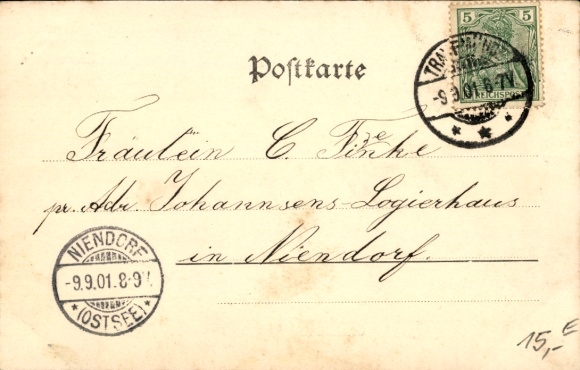 5 5
REICHSPOST
TRAVEMÜNDE
-9.9.01.6-7V.
Postkarte
Fräulein C. Finke
pr. Adr. Johannsens-Logierhaus
in Niendorf.
NIENDORF
-9.9.01.8-9V.
*(OSTSEE)*
15,- E